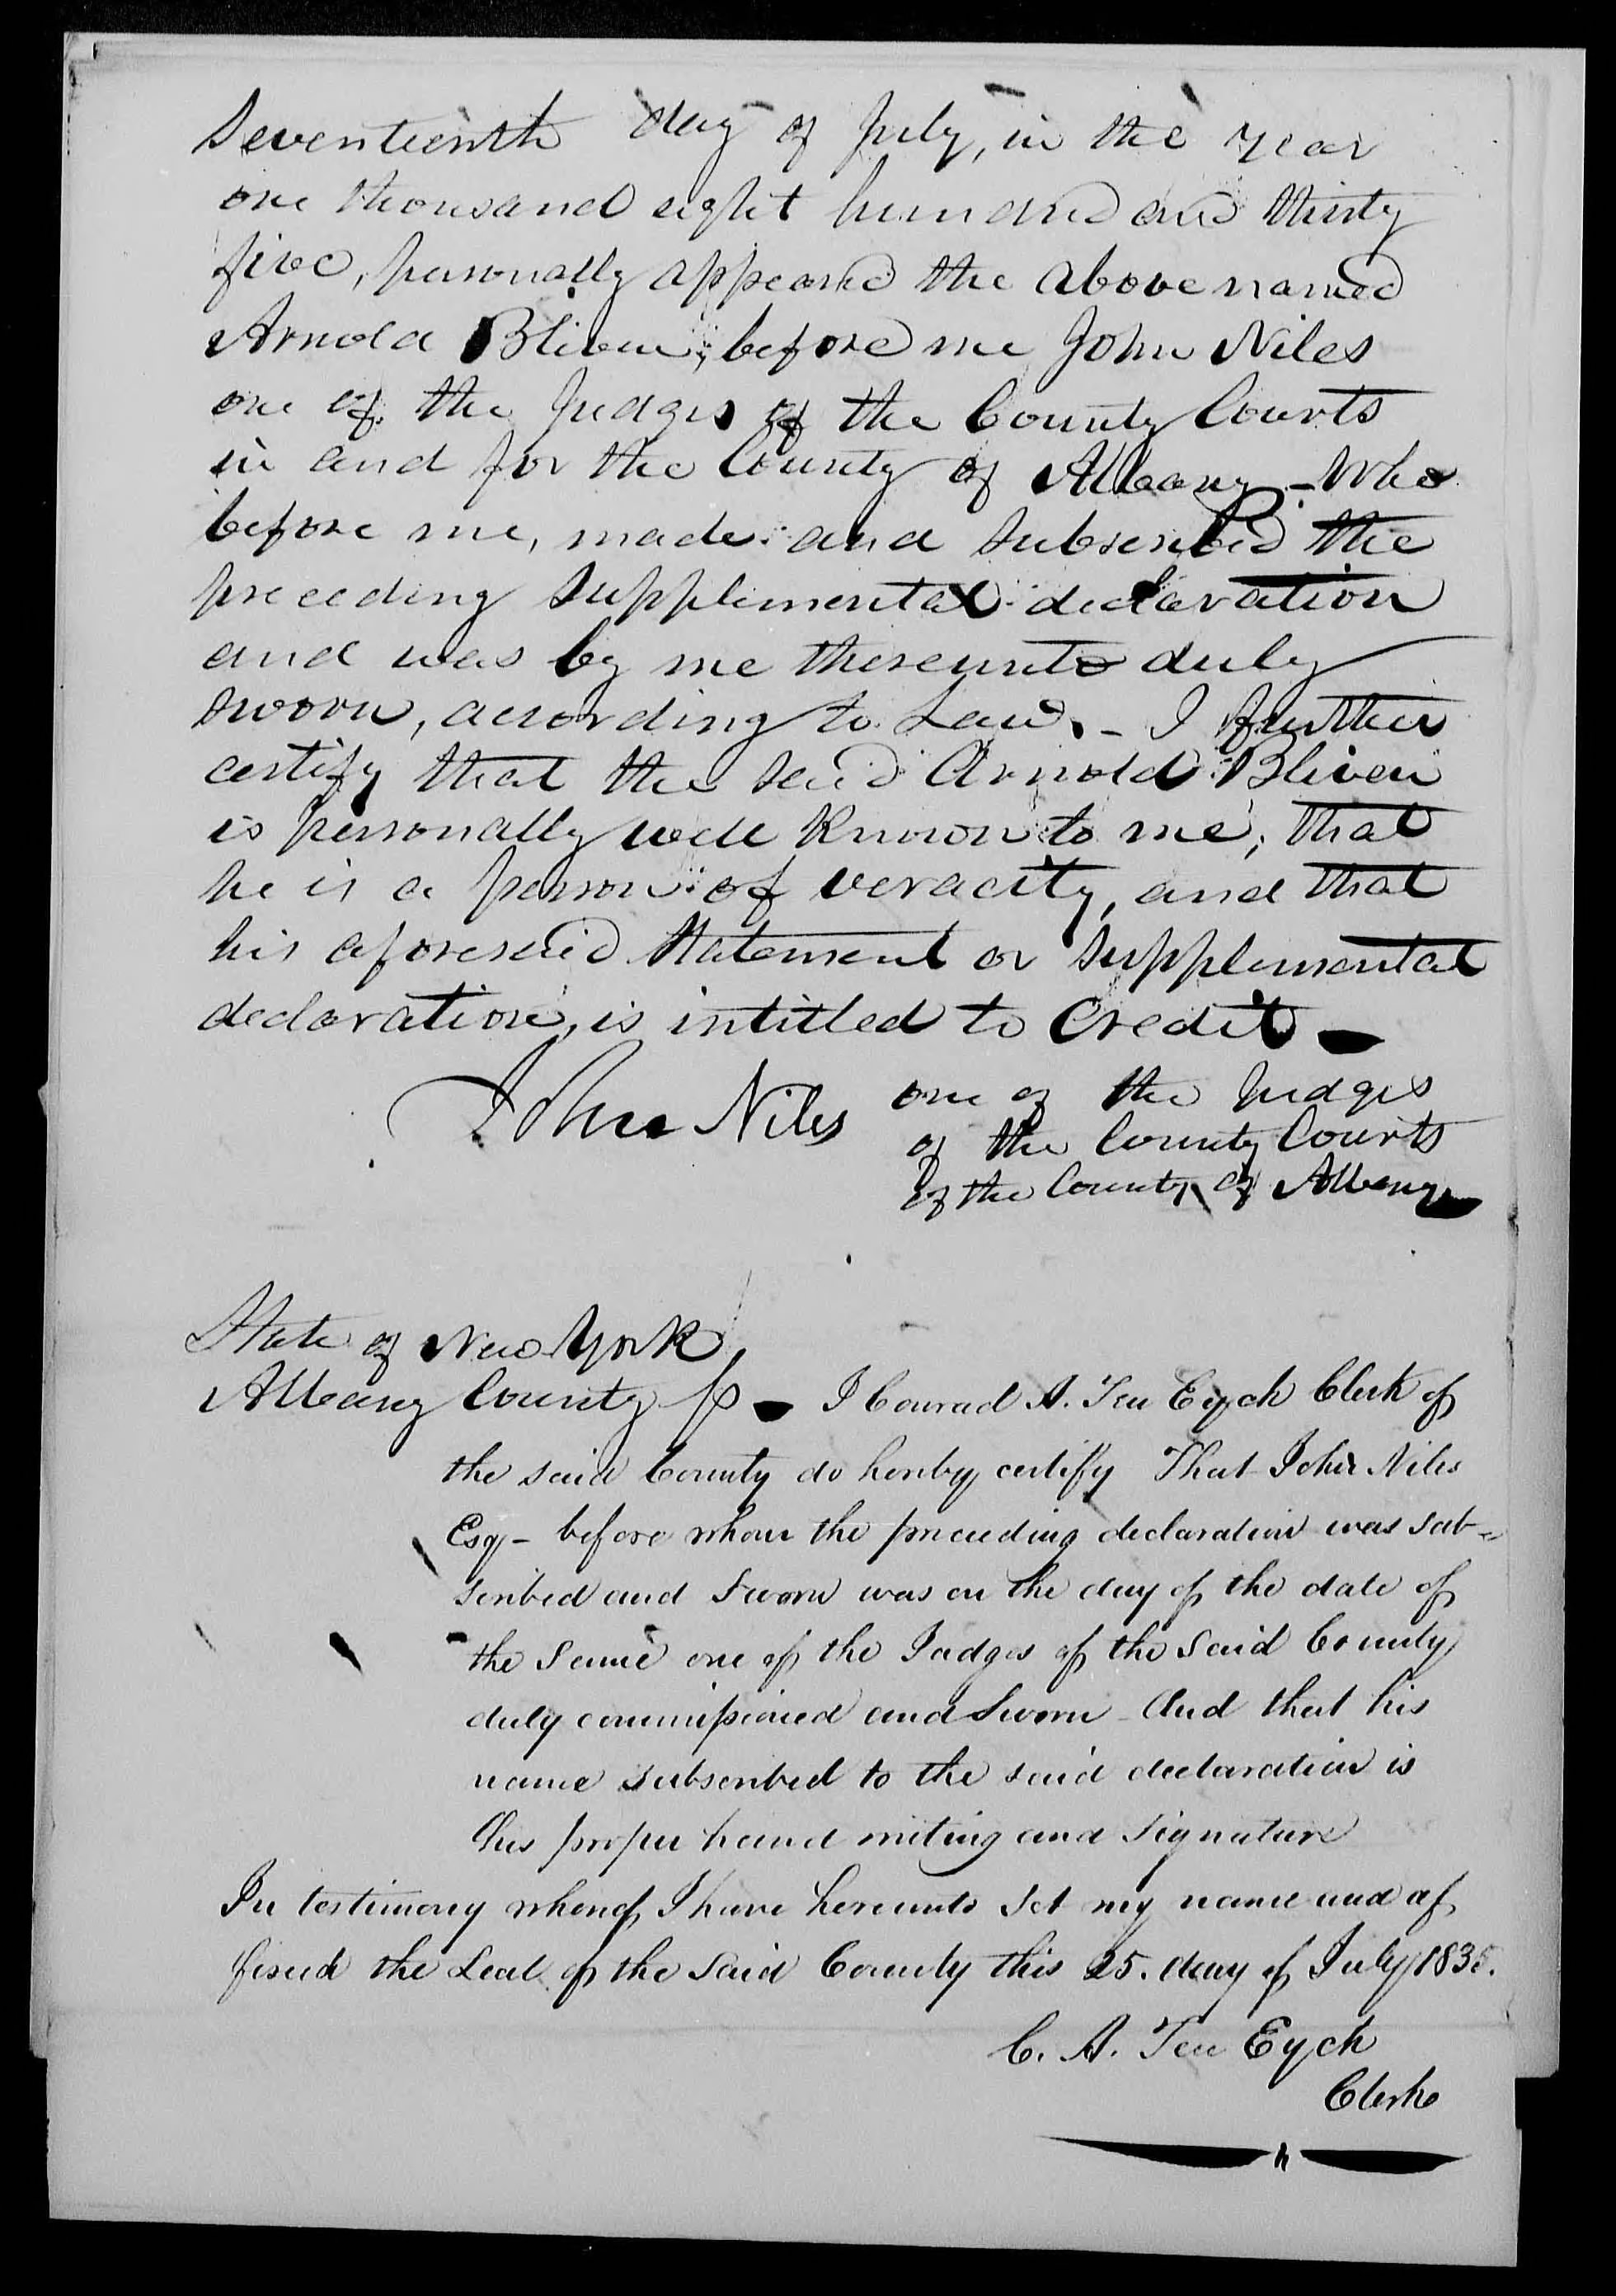 Seventeenth day of July, in the year
one thousand eight hundred and thirty
five, personally appeared the above named
Arnold Bliven, before me John Niles
one of the Judges of the County Courts
in and for the County of Albany - who
before me, made and subscribed the
preceeding supplimental declaration
and was by me thereunto duly
sworn, according to Law. - I further
certify that the said Arnold Bliven
is personally well known to me, that
he is a person of veracity, and that
his aforesaid statement or supplemental
declaration, is intitled to Credit -
John Niles one of the Judges
of the County Courts
of the County of Albany
State of New York
Albany County ss - I Conrad A. Ten Eyck Clerk of
the said County do hereby certify That John Niles
Esq - before whom the preceeding declaration was sub-
scribed and Sworn was on the day of the date of
the same one of the Judges of the said County
duly commissioned and Sworn - And that his
name subscribed to the said declaration is
his proper hand writing and signature
In testimony whereof I have hereunto set my name and af
fixed the Seal of the said County this 25. day of July 1835.
C. A. Ten Eyck
Clerk